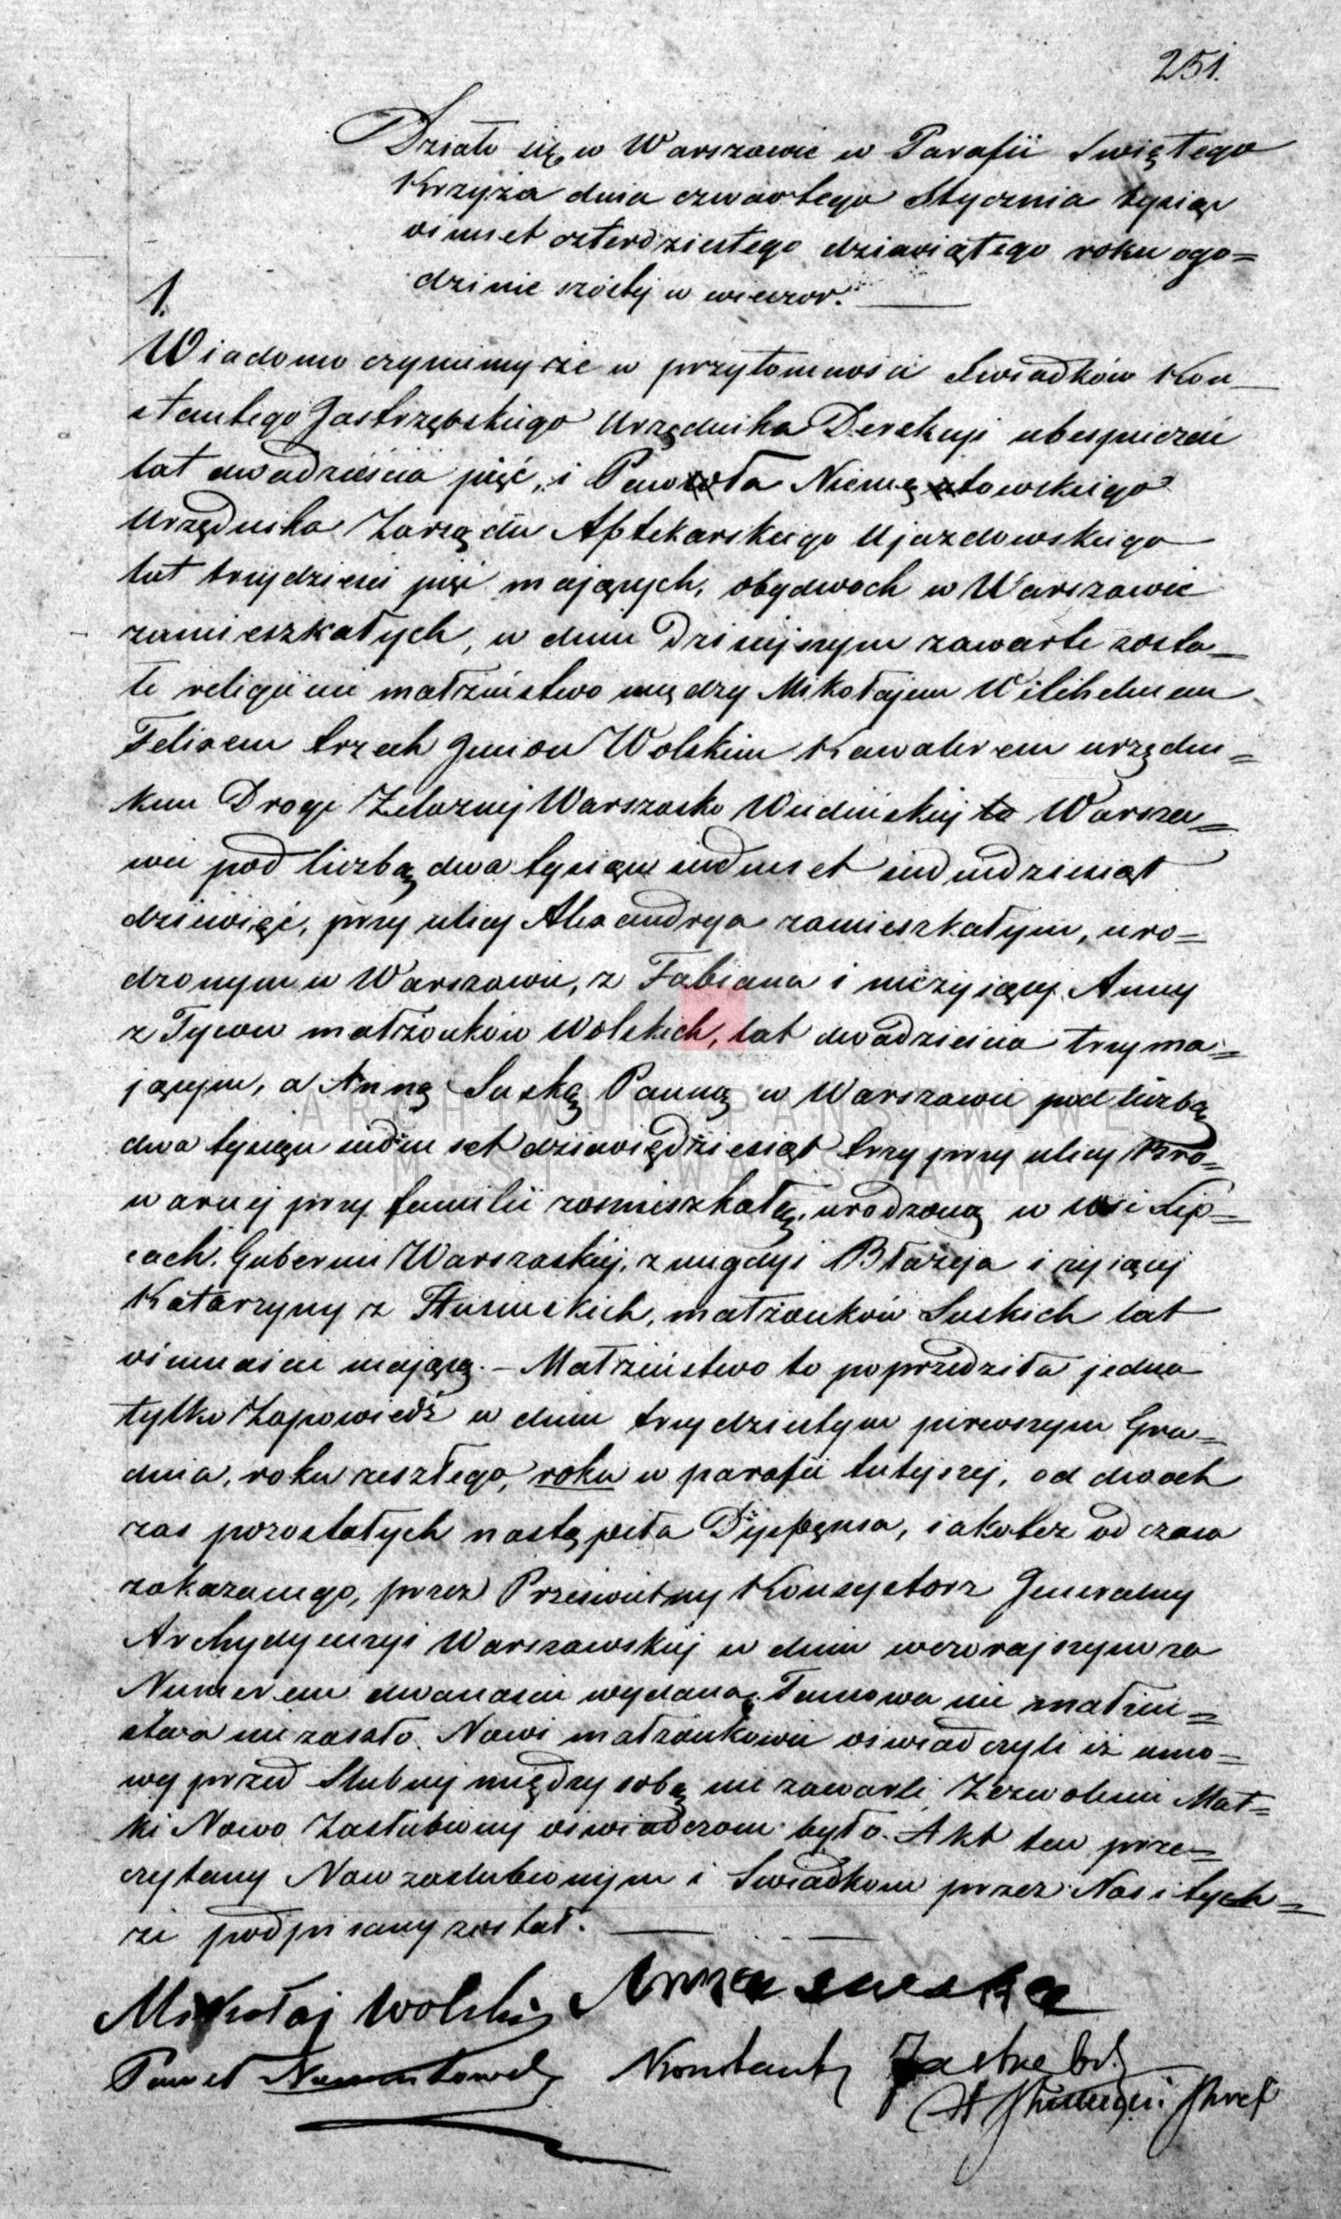 251.
Działo się w Warszawie w Parafii Swiętego
Krzyża dnia czwartego Stycznia tysiąc
osimset czterdziestego dziewiątego roku ogo=
dzinie szóstej w wieczor.
1.
Wiadomo czyniemy że w przytomności Swiadków Kon_
stantego Jastrzębskiego Urzędnika Derekcji ubespieczeń
lat dwadzieścia pięć, i Pawła Niemętowskiego
Urzędnika Zarządu Aptekarskiego Ujazdowskiego
lat trzydzieści pięć mających, obydwoch w Warszawie
zamieszkałych, w dniu Dzisiejszym zawarte zosta_
łe religijne małżeństwo między Mikołajem Wilhelmem
Felixem trzech Imion Wolskim Kawalerem urzędni=
kiem Drogi Żelaznej Warszasko Wiedińskiej to Warsza=
wie pod liczbą dwa tysiące siedmset siedmdziesiąt
dziewięć, przy ulicy Alexandrya zamieszkałym, uro=
dzonym w Warszawie, z Fabiana i nieżyjącej Anny
z Tycow małżonków Wolskich, lat dwadzieścia trzy ma=
jącym, a Anną Suską Panną w Warszawie pod liczbą
dwa tysiące siedmset dziewięćdziesiąt trzy przy ulicy Bro=
warnej przy familii zamieszkałą, urodzoną w Wsi Lip=
cach Gubernii Warszaskiej, z niegdyś Błażeja i żyjącej
Katarzyny z małżonków Suskich lat
ośmnaście mającą. – Małżeństwo to poprzedziła jedna
tylko Zapowiedź w dniu trzydziestym pierwszym Gru=
dnia, roku zeszłego, roku w parafii tutejszej, od dwoch
zas pozostałych nastąpiła Dyspensa, jakoteż od czasu
zakazanego, przez Prześwietny Konsystorz Jeneralny
Archydyecezyi Warszawskiej w dniu wczorajszym za
Numerem dwanaście wydana. Tamowanie małżeń=
stwa nie zaszło. Nowi małżonkowie oświadczyli iż umo=
wy przed Slubnej między sobą nie zawarli. Zezwolenie Mat=
ki Nowo Zaślubionej oświadczone było. Akt ten prze=
czytany Nowzaślubionym i Swiadkom przez Nas i tych=
że podpisany został.
Mikołaj Wolski Anna Suska
Paweł Niemętowski Konstanty Jastrzębski